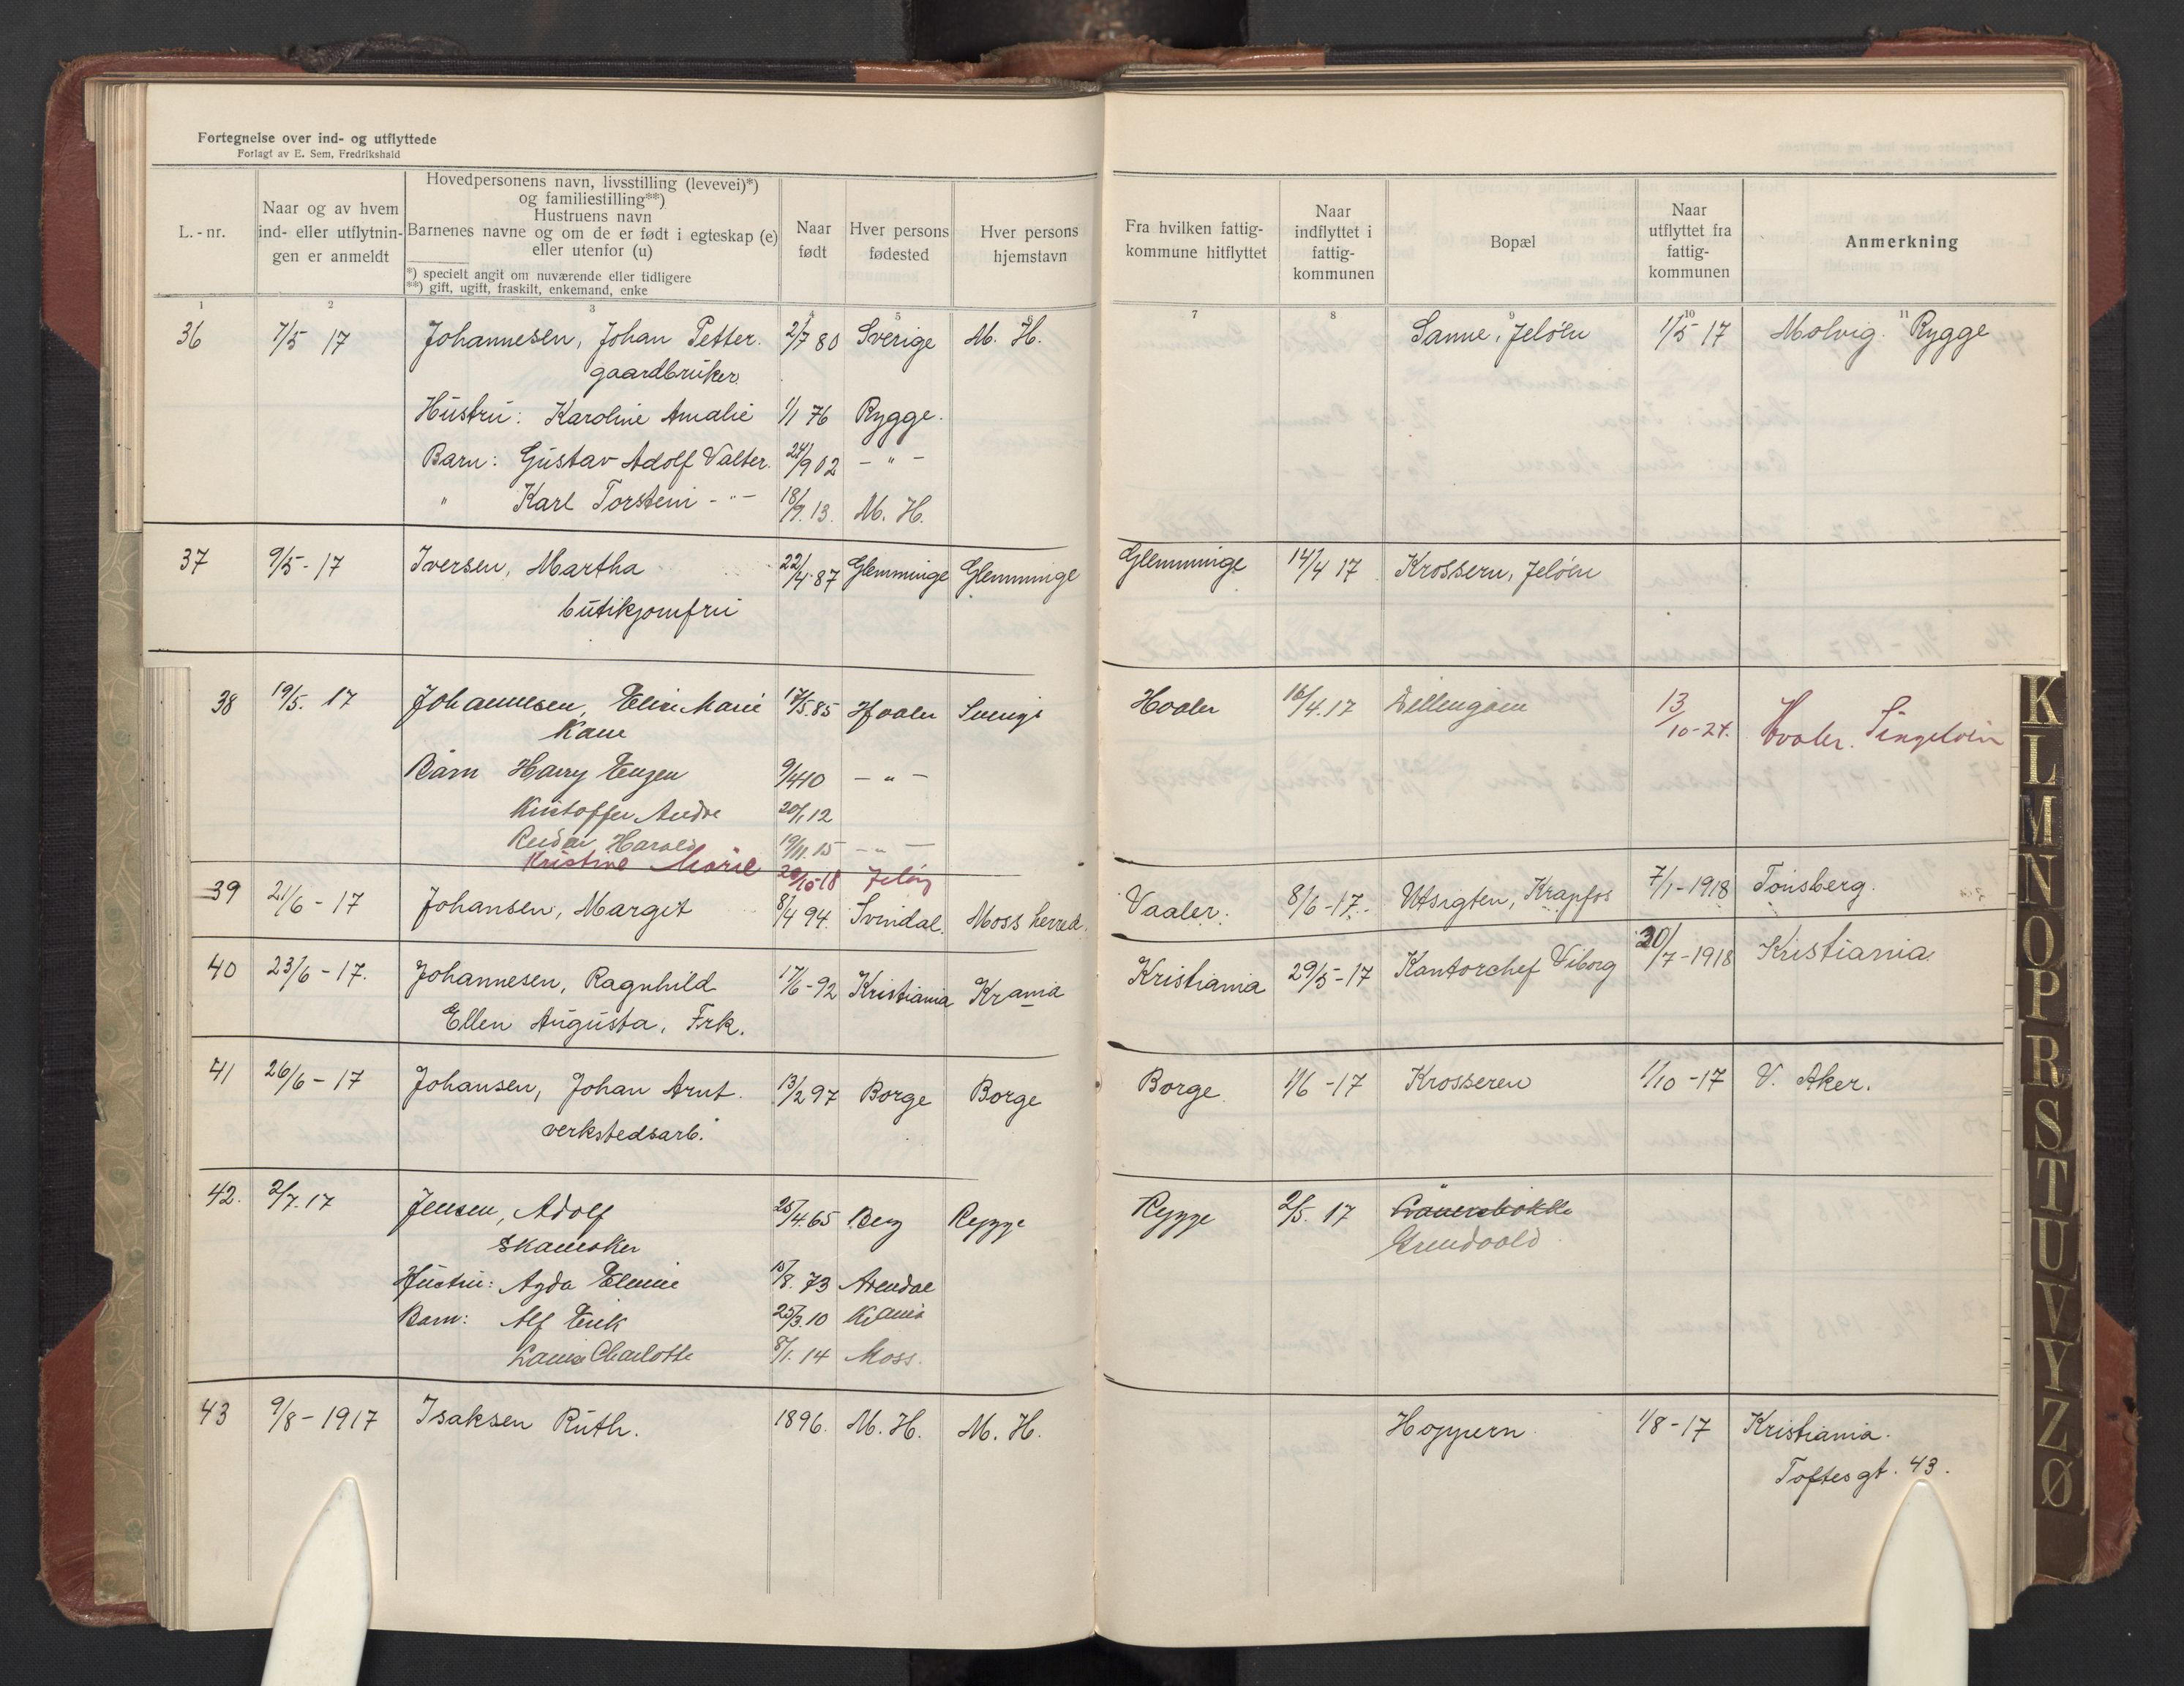 Fortegnelse over ind- og utflyttede
Forlagt av E. Sem, Fredrikshald
L.-nr.
Naar og av hvem
ind- eller utflytnin-
gen er anmeldt
Hovedpersonens navn, livsstilling (levevei)*)
og familiestilling**)
Hustruens navn
Barnenes navne og om de er født i egteskap (e)
eller utenfor (u)
*) specielt angit om nuværende eller tidligere
**) gift, ugift, fraskilt, enkemand, enke
Naar
født
Hver persons
fødested
Hver persons
hjemstavn
Fra hvilken fattig-
kommune hitflyttet
Naar
indflyttet i
fattig-
kommunen
Bopæl
Naar
utflyttet fra
fattig-
kommunen
Anmerkning
1 2 3 4 5 6 7 8 9 10 11
36 7/5 17 Johannesen, Johan Petter. 2/7 80 Sverige M. H. Sanne, Jeløen 1/5 17 Molvig. Rygge
gaardbruker.
Hustru: Karoline Amalie 1/1 76 Rygge.
Barn: Gustav Adolf Valter. 24/9 02 - " -
" Karl Torstein - " - 18/9. 13. M. H.
37 9/5 - 17 Iversen, Martha 22/4 87 Glemminge Glemminge Glemminge 14/4 17 Krossern, Jeløen
butikjomfru
38 19/5. 17 Johannesen, Elin Marie 17/5. 85 Hvaler Sverige Hvaler 16/4. 17 Dillengaen 13/10-24. Hvaler.
Barn Harry 9/4 10 - " -
Kristoffer 20/1 12
Reidar Harald 19/11. 15 - " -
Kristine Marie 20/10-18 Jeløy
39 21/6 - 17 Johansen, Margit 8/4 94. Svindal. Moss herred. Vaaler. 8/6 - 17. Utsigten, Krapfos 7/1 - 1918 Tønsberg.
40 23/6 - 17. Johannesen, Ragnhild 17/6 - 92 Kristiania Krania Kristiania 29/5 - 17 Kantorchef Viborg 30/7 - 1918 Kristiania
Ellen Augusta, Frk.
41 26/6 - 17 Johansen, Johan Arnt. 13/2 97 Borge Borge Borge 1/6 - 17 Krosseren 1/10 - 17 V. Aker.
verkstedsarb.
42. 2/7. 17 Jensen, Adolf 25/4. 65 Berg Rygge Rygge 2/5. 17
skomaker
Hustru: Agda 15/8. 73 Arendal
Barn: Alf Erik 25/3. 10 Krania
Charlotte 8/1. 14 Moss.
43 9/8 - 1917 Isaksen Ruth. 1896. M. H. M. H. Hoppern 1/8 - 17 Kristiania.
Toftesgt. 43.
K
L
M
N
O
P
R
S
T
U
V
Y
Z
Ø